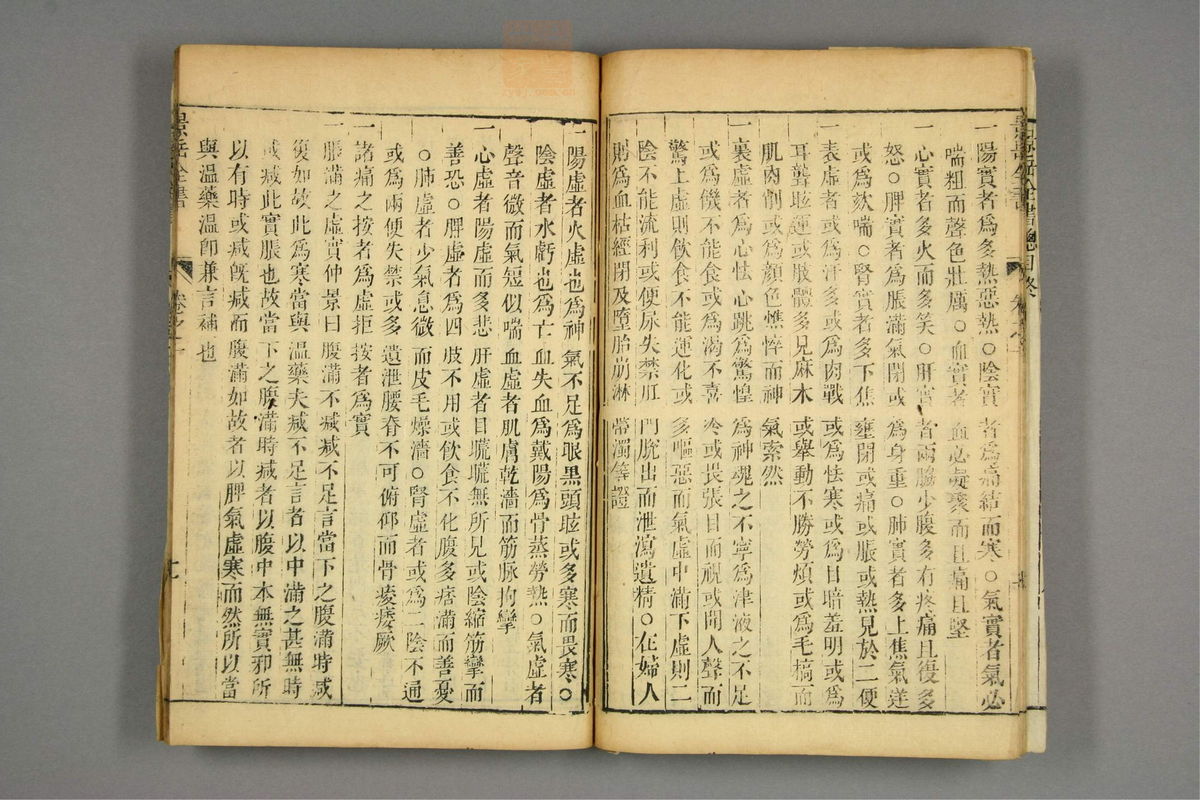 一陽實者爲多熱惡熱○陰實者爲痛結而寒○氣實者氣必
喘粗而聲色壯厲○血實者血必凝聚而且痛且堅
一心實者多火而多笑○肝實者兩脇少腹多有疼痛且復多
怒○脾實者爲脹滿氣閉或爲身重○肺實者多上焦氣逆
或爲欬喘○腎實者多下焦壅閉或痛或脹或熱見於二便
一表虛者或爲汗多或爲肉戰或爲怯寒或爲目暗羞明或爲
耳聾眩運或肢體多見麻木或舉動不勝勞煩或爲毛槁而
肌肉削或爲顏色憔悴而神氣索然
一裏虛者爲心怯心跳爲驚惶爲神魂之不寧爲津液之不足
或爲饑不能食或爲渴不喜冷或畏張目而視或聞人聲而
驚上虛則飲食不能運化或多嘔惡而氣虛中滿下虛則二
陰不能流利或便尿失禁肛門脫出而泄瀉遺精○在婦人
則爲血枯經閉及墮胎崩淋帶濁等證
一陽虛者火虛也爲神氣不足爲眼黑頭眩或多寒而畏寒○
陰虛者水虧也爲亡血失血爲戴陽爲骨蒸勞熱○氣虛者
聲音微而氣短似喘血虛者肌膚乾濇而筋脉拘攣
一心虛者陽虛而多悲肝虛者目𥆨𥆨無所見或陰縮筋攣而
善恐○脾虛者爲四肢不用或飲食不化腹多痞滿而善憂
○肺虛者少氣息微而皮毛燥濇○腎虛者或爲二陰不通
或爲兩便失禁或多遺泄腰脊不可俯仰而骨痠痿厥
一諸痛之按者爲虛拒按者爲實
一脹滿之虛實仲景曰腹滿不減減不足言當下之腹滿時減
復如故此爲寒當與溫藥夫減不足言者以中滿之甚無時
或減此實脹也故當下之腹滿時減者以腹中本無實邪所
以有時或減旣減而腹滿如故者以脾氣虛寒而然所以當
與溫藥溫卽兼言補也
景岳全書
卷之一